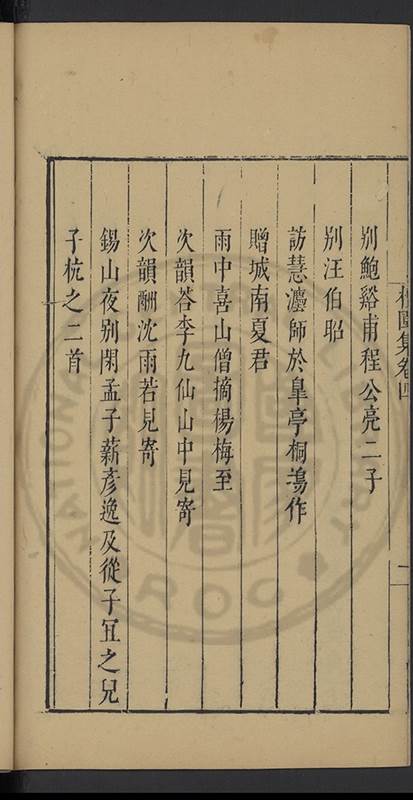 別鮑谿甫程公亮二子
別汪伯昭
訪慧灋師於皐亭桐塢作
贈城南夏君
雨中喜山僧摘楊梅至
次韻荅李九仙山中見寄
次韻酬沈雨若見寄
錫山夜別閑孟子薪彥逸及從子宜之兒
子杭之二首
園集卷四
二